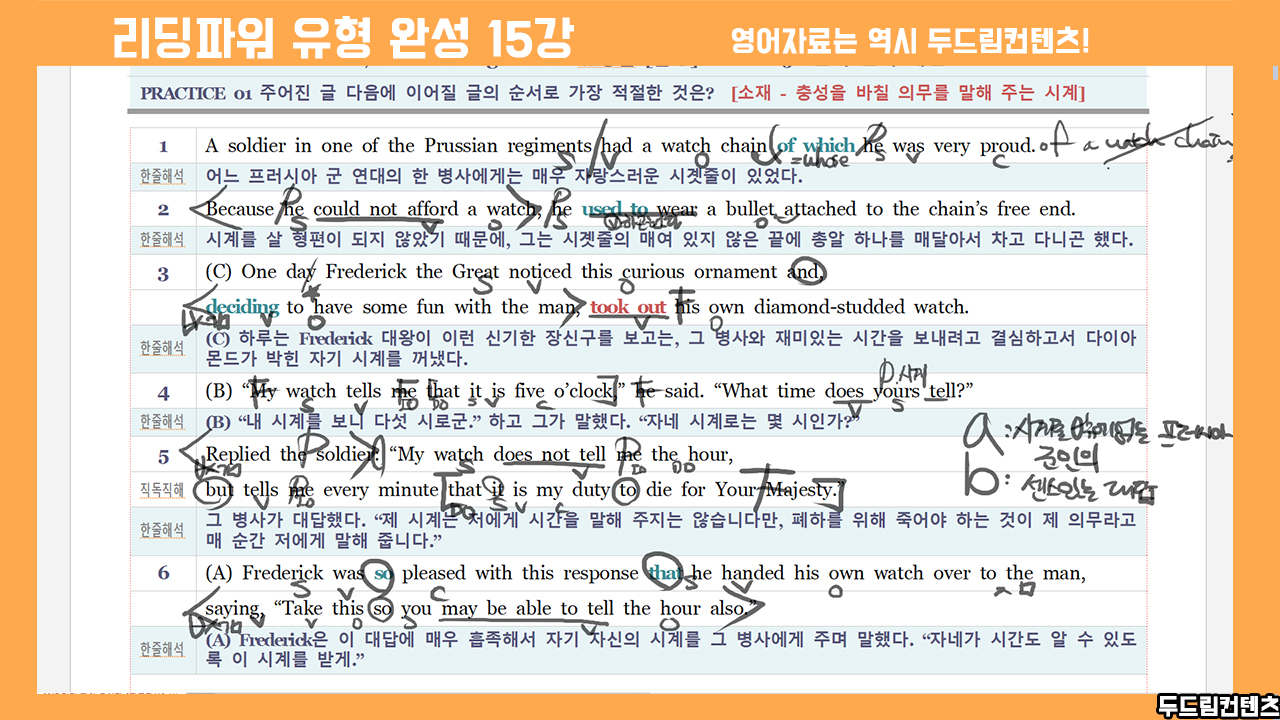 리딩파워 유형 완성 15강
영어자료는 역시 두드림컨텐츠!
PRACTICE 01 주어진 글 다음에 이어질 글의 순서로 가장 적절한 것은? [소재 - 충성을 바칠 의무를 말해 주는 시계]
1 A soldier in one of the Prussian regiments had a watch chain of which he was very proud. of a watch chain
P
S V O =whose S V C
한줄해석 어느 프러시아 군 연대의 한 병사에게는 매우 자랑스러운 시곗줄이 있었다.
2 Because he could not afford a watch, he used to wear a bullet attached to the chain's free end.
P P
S V O S V O
한줄해석 시계를 살 형편이 되지 않았기 때문에, 그는 시곗줄의 매여 있지 않은 끝에 총알 하나를 매달아서 차고 다니곤 했다.
3 (C) One day Frederick the Great noticed this curious ornament and,
S V O
deciding to have some fun with the man, took out his own diamond-studded watch.
F
V O V O
한줄해석 (C) 하루는 Frederick 대왕이 이런 신기한 장신구를 보고는, 그 병사와 재미있는 시간을 보내려고 결심하고서 다이아
몬드가 박힌 자기 시계를 꺼냈다.
P.시계
4 (B) “My watch tells me that it is five o'clock,” he said. “What time does yours tell?”
F F F
S V IO DO S V C V S
한줄해석 (B) “내 시계를 보니 다섯 시로군.” 하고 그가 말했다. “자네 시계로는 몇 시인가?”
a:시계를
프러시아
군인의
b: 센스있는 대답
5 Replied the soldier: “My watch does not tell me the hour,
P P
S V IO DO
직독직해 but tells me every minute that it is my duty to die for Your Majesty.”
P F
V IO DO S V C
한줄해석 그 병사가 대답했다. “제 시계는 저에게 시간을 말해 주지는 않습니다만, 폐하를 위해 죽어야 하는 것이 제 의무라고
매 순간 저에게 말해 줍니다.”
6 (A) Frederick was so pleased with this response that he handed his own watch over to the man,
S V C S V O
saying, “Take this so you may be able to tell the hour also.”
V V O S V O
한줄해석 (A) Frederick은 이 대답에 매우 흡족해서 자기 자신의 시계를 그 병사에게 주며 말했다. “자네가 시간도 알 수 있도
록 이 시계를 받게.”
두드림컨텐츠